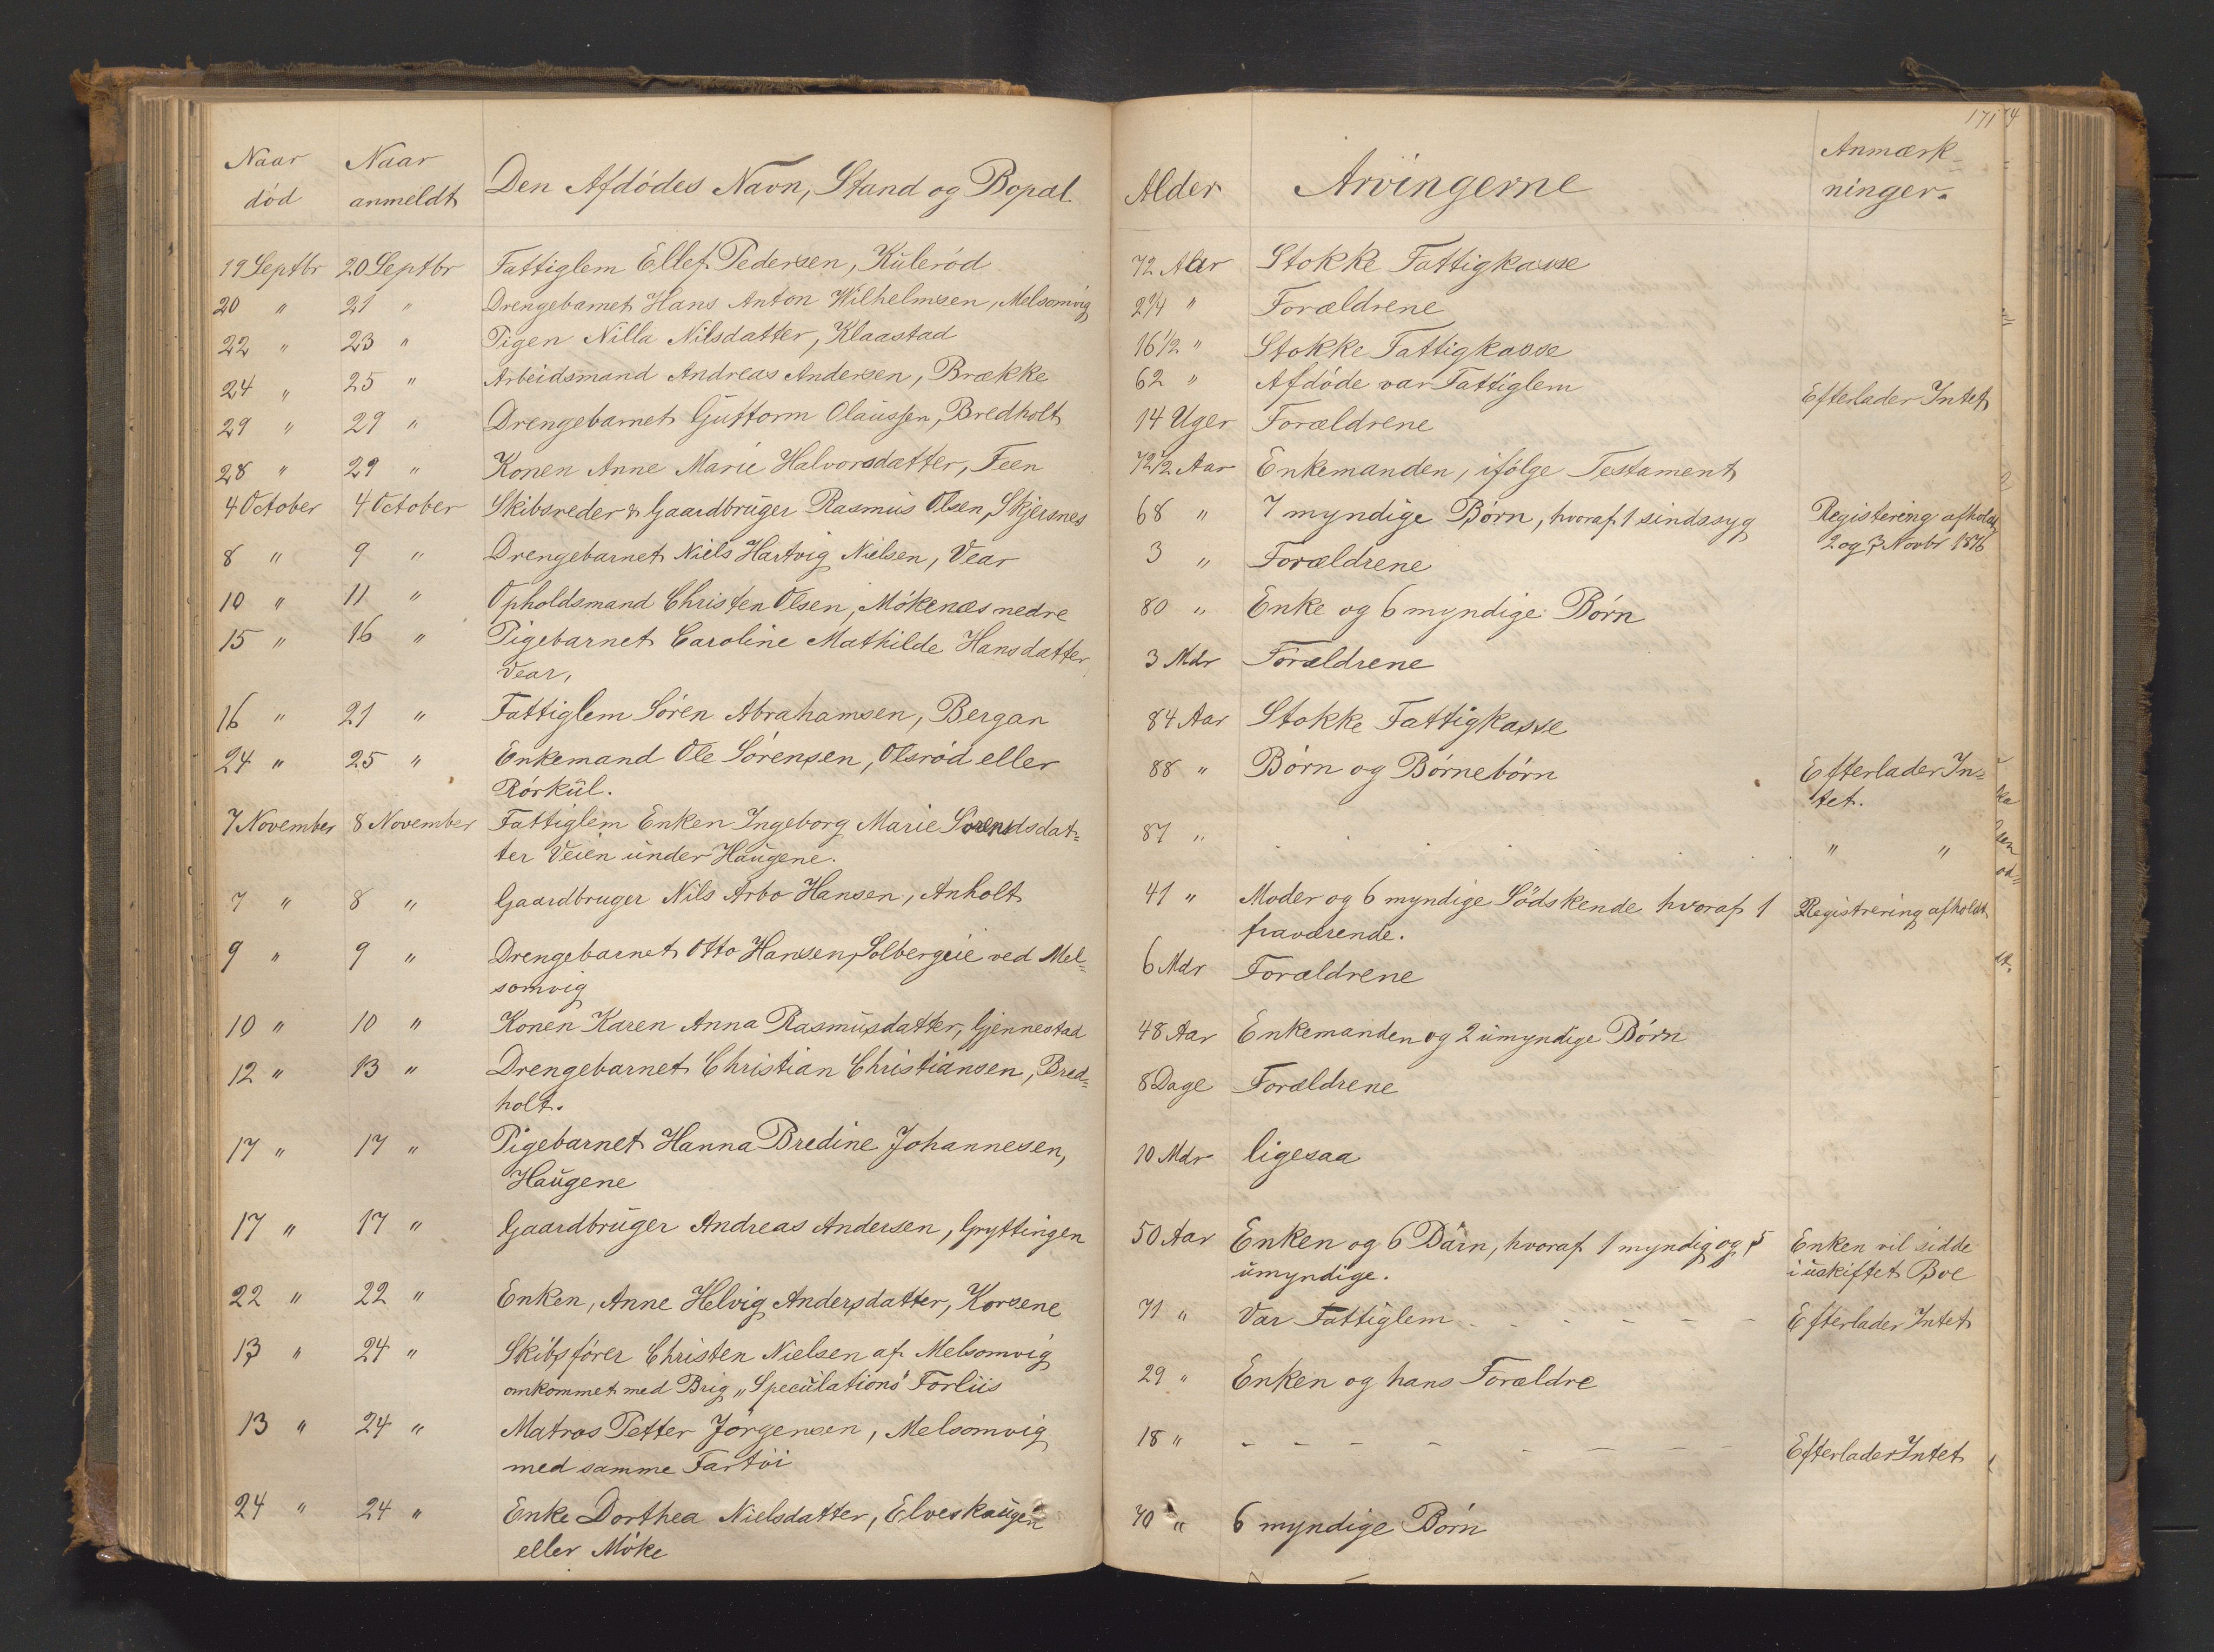 171
Naar død Naar anmeldt Den Afdødes Navn, Stand og Bopæl Alder Arvingerne Anmærk-
ninger.
19 Septbr 20 Septbr Fattiglem Ellef Pedersen, Kulerød 72 Aar Stokke Fattigkasse
20 " 21 " Drengebarnet Hans Anton Wilhelmsen, Melsomvig 2 1/4 " Forældrene
22 " 23 " Pigen Nilla Nilsdatter, Klaastad 16 1/2 " Stokke Fattigkasse
24 " 25 " Arbeidsmand Andreas Andersen, Brække 62 " Afdøde var Fattiglem Efterlader Intet
29 " 29 " Drengebarnet Guttorm Olaussen, Bredholt 14 Uger Forældrene
28 " 29 " Konen Anne Marie Halvorsdatter, Feen 72 1/2 Aar Enkemanden, ifølge Testament
4 October 4 October Skibsreder & Gaardbruger Rasmus Olsen, Skjersnes 68 " 7 myndige Børn, hvoraf 1 sindssyg Registering afholdt
2 og 3 Novbr 1876
8 " 9 " Drengebarnet Niels Hartvig Nielsen, Vear 3 " Forældrene
10 " 11 " Opholdsmand Christen Olsen, Møkenæs nedre 80 " Enke og 6 myndige Børn
15 " 16 " Pigebarnet Caroline Mathilde Hansdatter
Vear, 3 Mdr Forældrene
16 " 21 " Fattiglem Søren Abrahamsen, Bergan 84 Aar Stokke Fattigkasse
24 " 25 " Enkemand Ole Sørensen, Olsrød eller 88 " Børn og Børnebørn Efterlader In-
Rørkul. tet.
7 November 8 November Fattiglem Enken Ingeborg Marie Sørensdat-
ter Veien under Haugene. 87 " " "
7 " 8 " Gaardbruger Nils Arbo Hansen, Anholt 41 " Moder og 6 myndige Södskende hvoraf 1 Registrering afholdt
fraværende.
9 " 9 " Drengebarnet Otto Hansen, Solbergeie ved Mel-
somvig 6 Mdr Forældrene
10 " 10 " Konen Karen Anna Rasmusdatter, Gjennestad 48 Aar Enkemanden og 2 umyndige Børn
12 " 13 " Drengebarnet Christian Christiansen, Bred-
holt. 8 Dage Forældrene
17 " 17 " Pigebarnet Hanna Bredine Johannesen,
Haugene 10 Mdr ligesaa
17 " 17 " Gaardbruger Andreas Andersen, Gryttingen 50 Aar Enken og 6 Børn, hvoraf 1 myndig og 5 Enken vil sidde
umyndige. i uskiftet Boe
22 " 22 " Enken, Anne Helvig Andersdatter, Korsene 71 " Var Fattiglem - - - - - - Efterlader Intet
13 " 24 " Skibsfører Christen Nielsen af Melsomvig
omkommet med Brig „Speculations" Forliis 29 " Enken og hans Forældre
13 " 24 " Matros Petter Jørgensen, Melsomvig 18 " - - - - - - - Efterlader Intet
med samme Fartøi
24 " 24 " Enke Dorthea Nielsdatter, Elveskaugen 70 " 6 myndige Børn
eller Møke